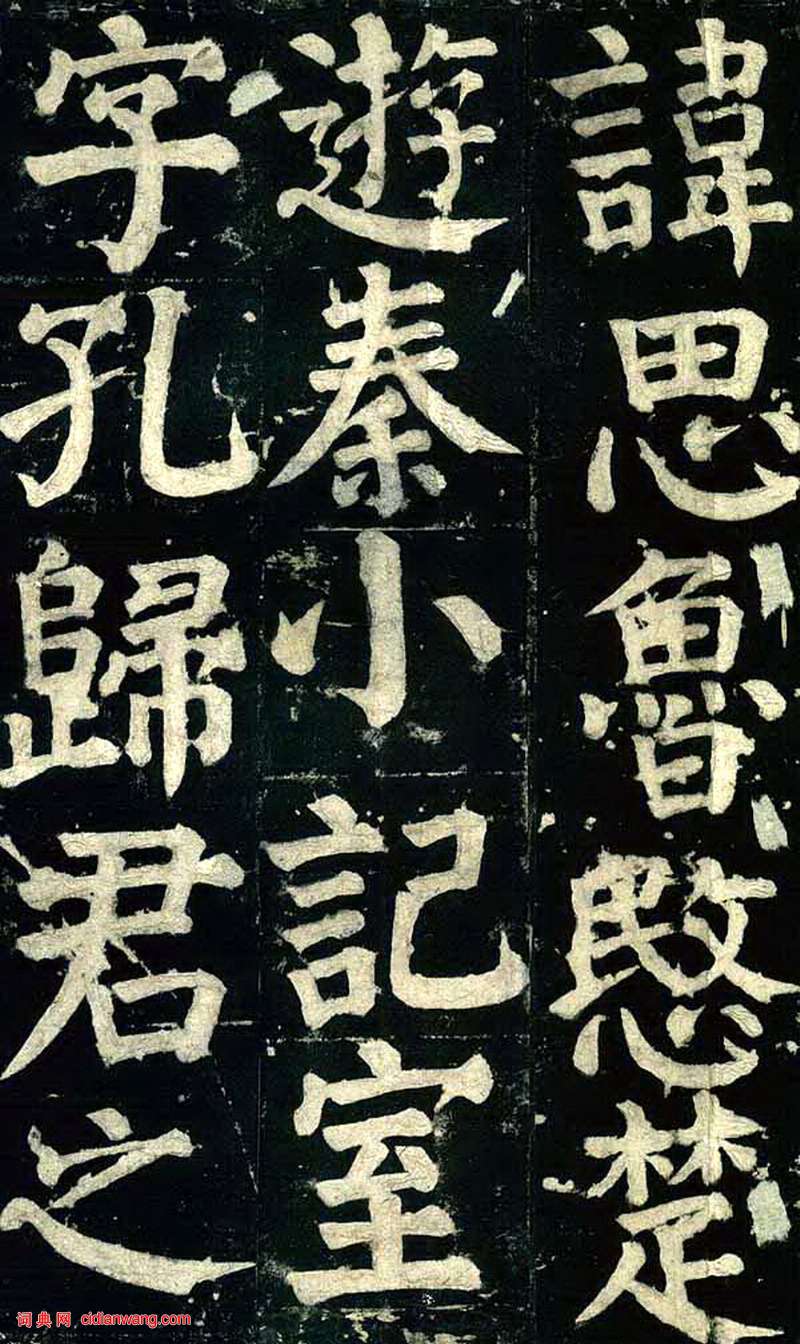 諱思魯愍楚
遊秦小記室
字孔歸君之
词典网：cidianwang.com